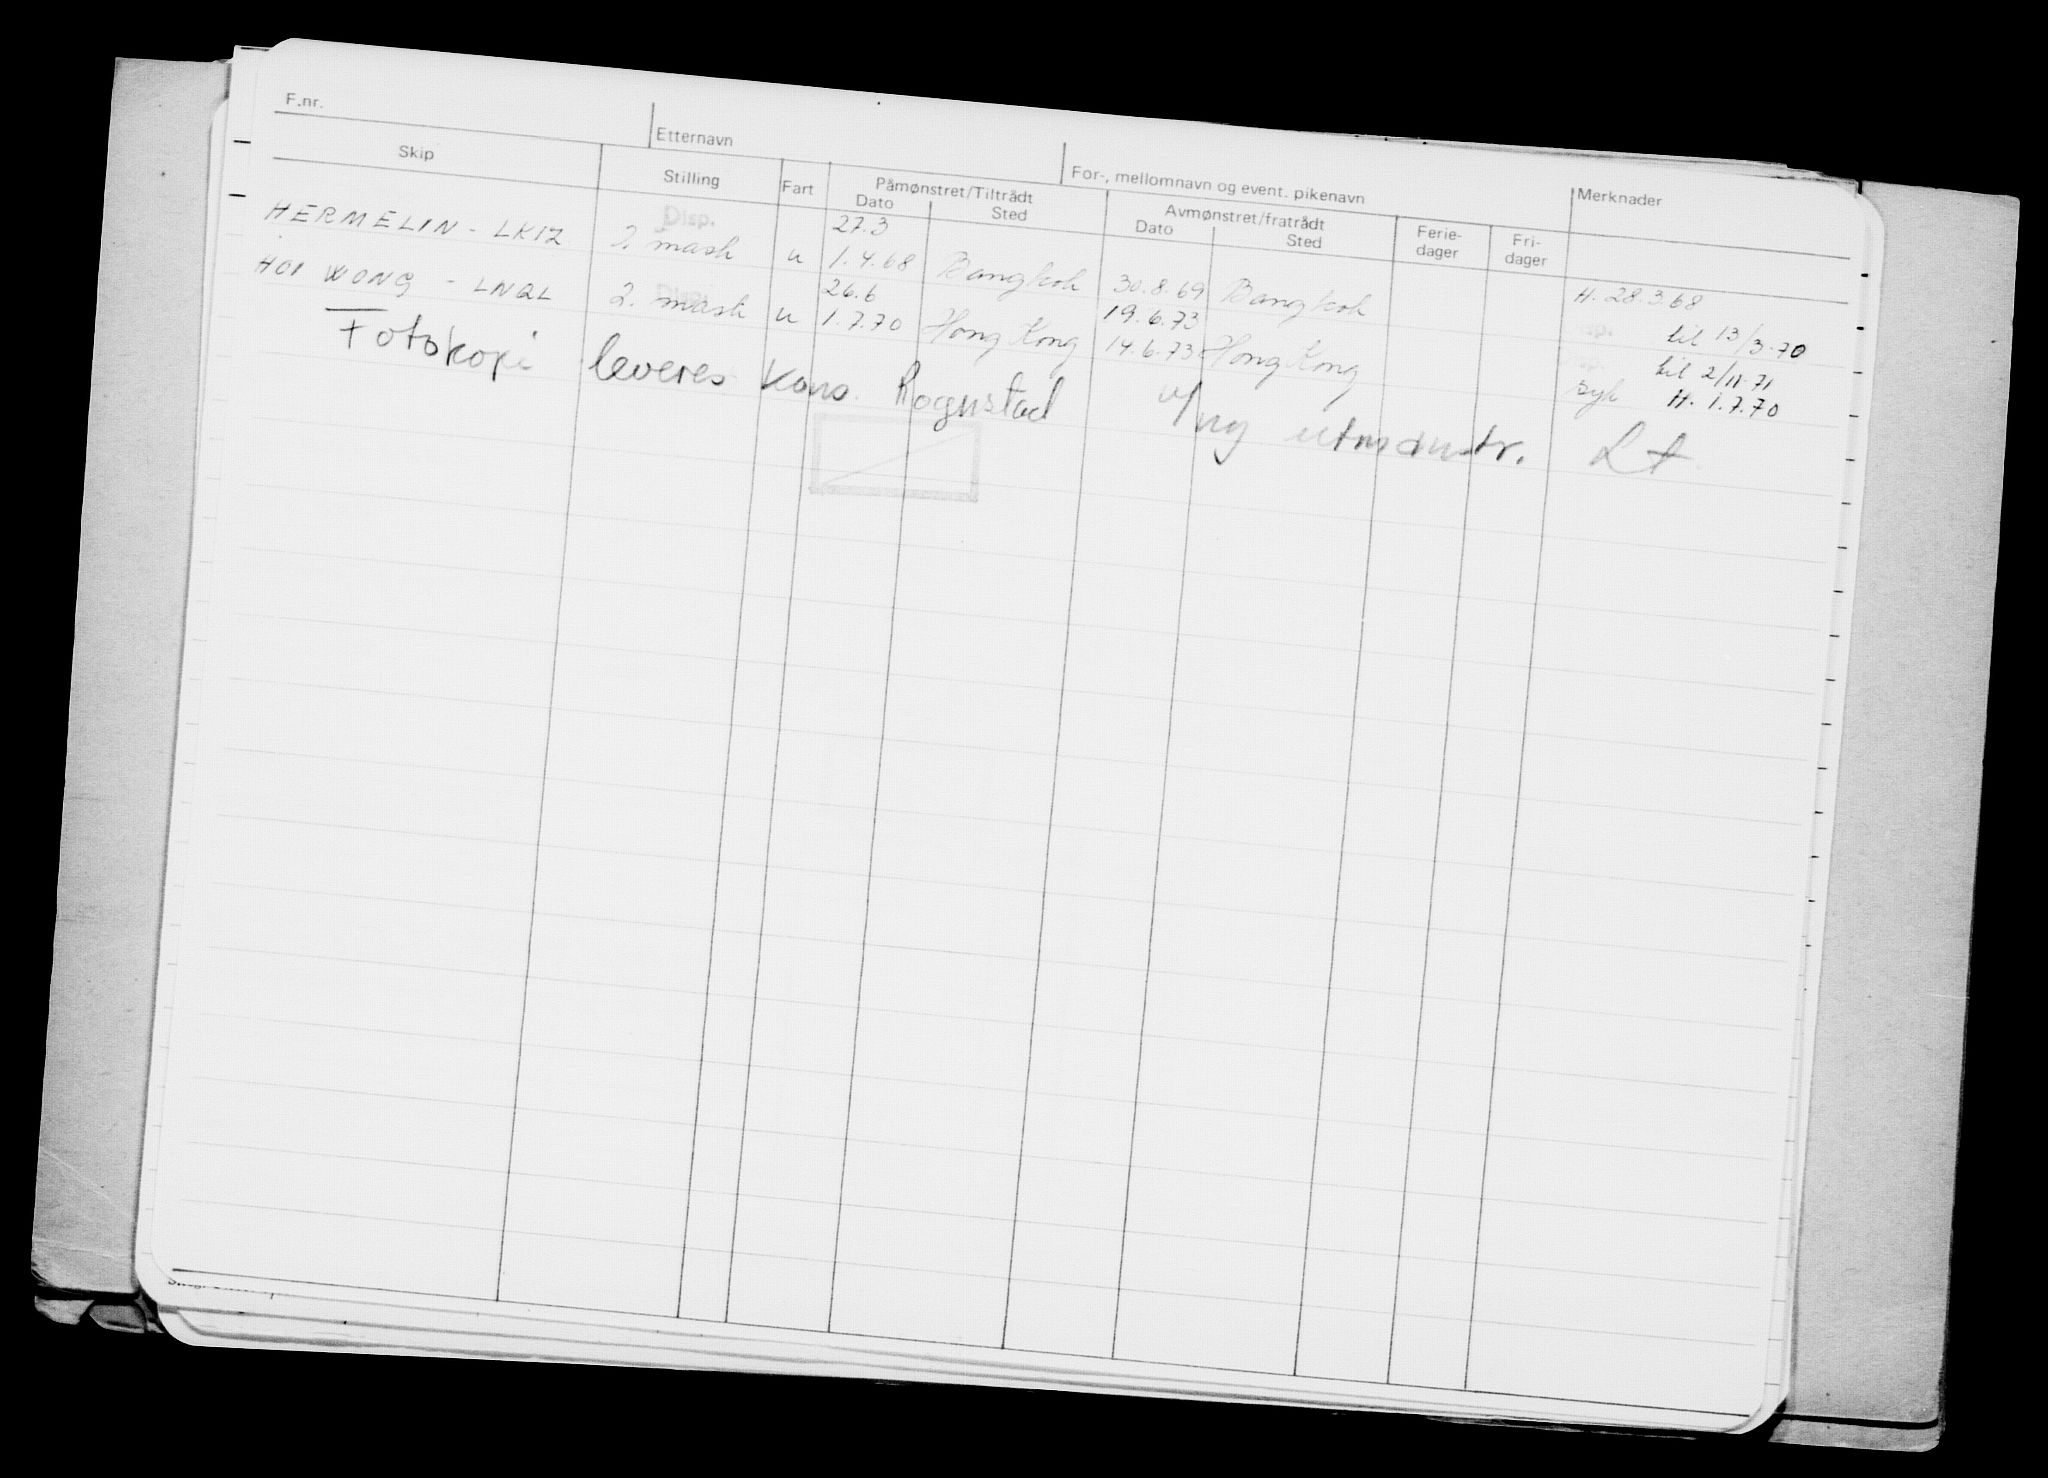 F.nr.
Etternavn
For-, mellomnavn og event. pikenavn
Skip
Stilling
Fart
Påmønstret/Tiltrådt
Dato
Sted
Avmønstret/fratrådt
Dato
Sted
Ferie-
dager
Fri-
dager
Merknader
Disp.
27.3
HERMELIN - LKIZ 2. mask u 1.4.68 Bangkok 30.8.69 Bangkok H. 28.3.68
26.6 19.6.73 til 13/3-70
HOI WONG - LNQL 2. mask u 1.7.70 Hong Kong 14.6.73 Hong Kong til 2/11-71
syk H. 1.7.70
Fotokopi leveres kons. Rognstad v/ny utmønstr.